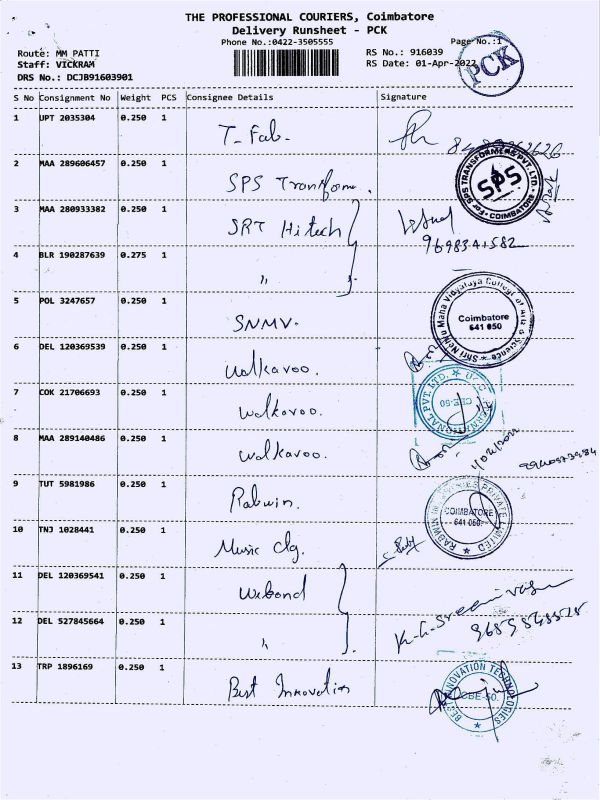 THE PROFESSIONAL COURIERS, Coimbatore
Delivery Runsheet - PCK
Phone No.:0422-3505555
Page No.:1
Route: MM PATTI
RS No.: 916039
Staff: VICKRAM
RS Date: 01-Apr-2022
DRS No.: DCJB91603901
PCK
S No Consignment No Weight PCS Consignee Details Signature
1 UPT 2035304 0.250 1 T-Fab.
2 MAA 289606457 0.250 1 SPS Transform. For SPS TRANSFORMERS PVT. LTD. SPS COIMBATORE
3 MAA 280933382 0.250 1 SRT Hitech
9698341582
4 BLR 190287639 0.275 1 "
5 POL 3247657 0.250 1 SNMV. Shri Nehru Maha Vidyalaya College of Arts & Science Coimbatore 641 050
6 DEL 120369539 0.250 1 walkaroo.
7 COK 21706693 0.250 1 walkaroo. PVT. LTD. CBE-50
8 MAA 289140486 0.250 1 walkaroo.
9 TUT 5981986 0.250 1 Rabwin. RABWIN INDUSTRIES PRIVATE LIMITED COIMBATORE 641 050
10 TNJ 1028441 0.250 1 Music clg.
11 DEL 120369541 0.250 1 Webond
12 DEL 527845664 0.250 1 " K.G. Sreenivasan
13 TRP 1896169 0.250 1 Best Innovation BEST INNOVATION TECHNOLOGIES CBE-50.